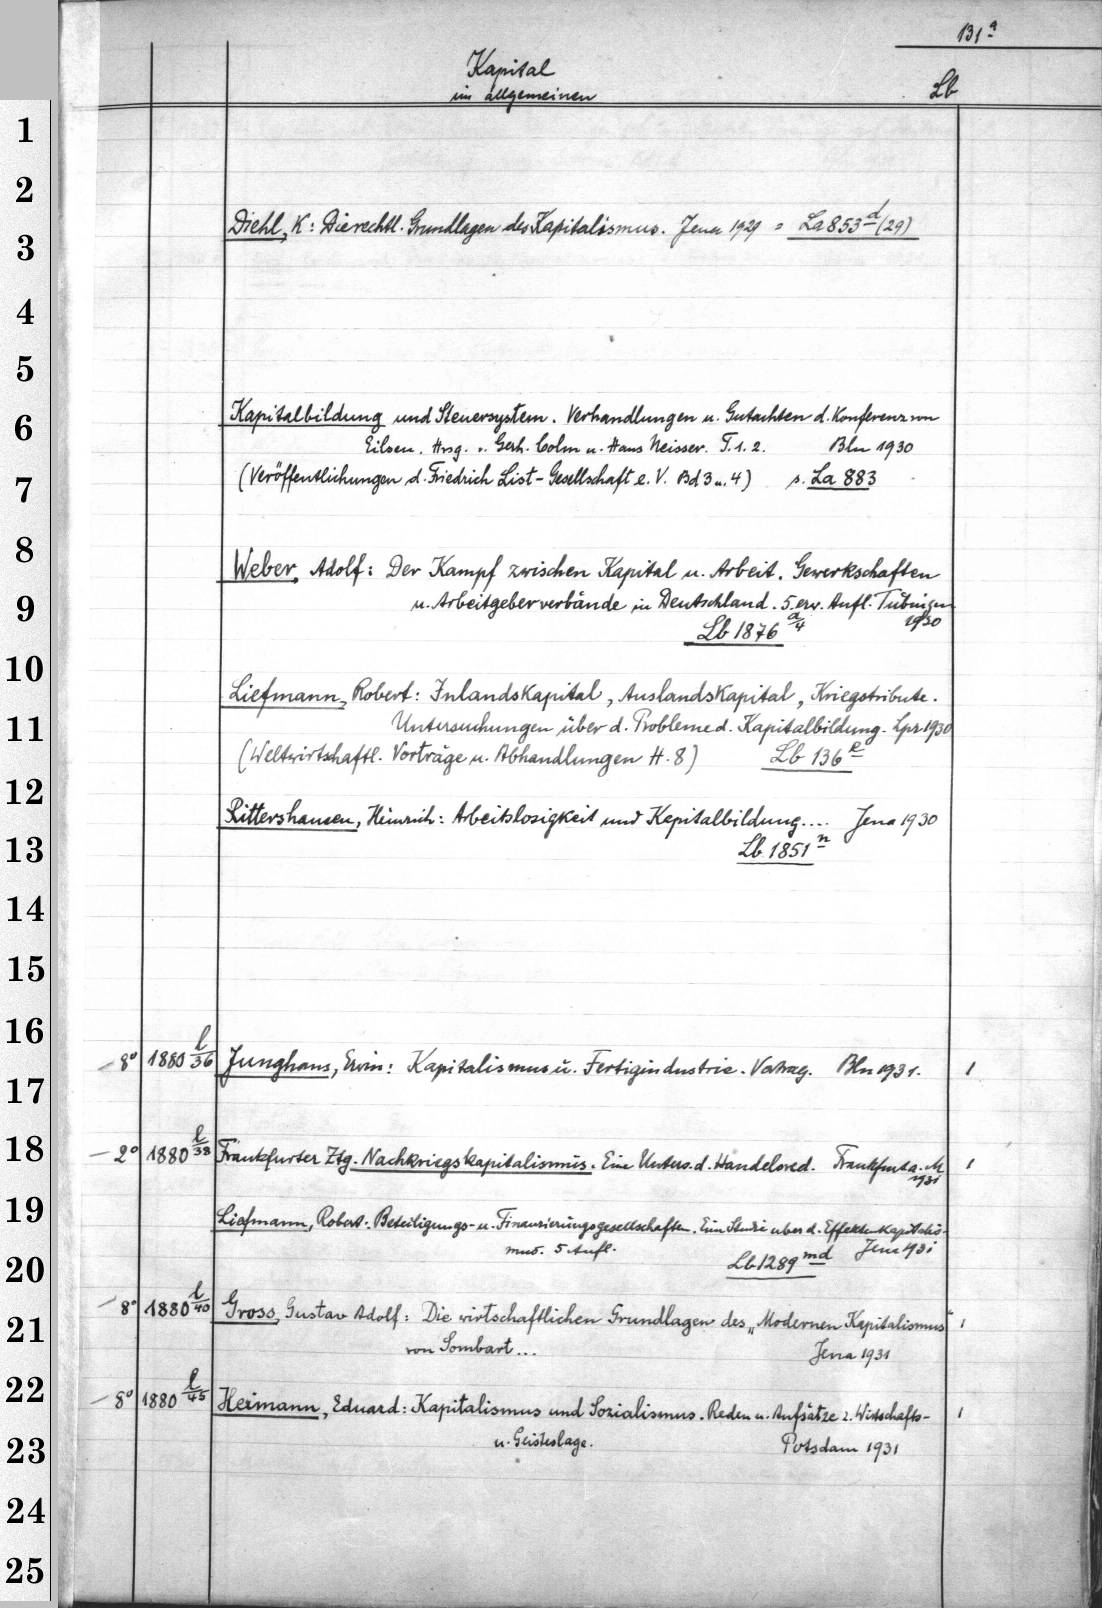 131a
Kapital
im allgemeinen
Lb
1
2
Diehl, K: Die rechtl. Grundlagen des Kapitalismus. Jena 1929 = La 853 d (29)
3
4
5
Kapitalbildung und Steuersystem. Verhandlungen u. Gutachten d. Konferenz von
6
Eilsen. Hrsg. v. Gerh. Colm u. Hans Neisser. T. 1. 2. Bln 1930
(Veröffentlichungen d. Friedrich List-Gesellschaft e. V. Bd 3 u. 4) s. La 883
7
8
Weber, Adolf: Der Kampf zwischen Kapital u. Arbeit. Gewerkschaften
u. Arbeitgeberverbände in Deutschland. 5. erw. Aufl. Tübingen
9
1930
Lb 1876 a/4
10
Liefmann, Robert: Inlandskapital, Auslandskapital, Kriegstribute.
11
Untersuchungen über d. Probleme d. Kapitalbildung. Lpz 1930
(Weltwirtschaftl. Vorträge u. Abhandlungen H. 8) Lb 136 e
12
Rittershausen, Heinrich: Arbeitslosigkeit und Kapitalbildung.... Jena 1930
13
Lb 1851 n
14
15
16
– 8° 1880 l/36 Junghans, Erwin: Kapitalismus u. Fertigindustrie. Vortrag. Bln 1931. 1
17
18
– 2° 1880 l/38 Frankfurter Ztg. Nachkriegskapitalismus. Eine Unters. d. Handelsred. Frankfurt a. M 1
1931
19
Liefmann, Robert: Beteiligungs- u. Finanzierungsgesellschaften. Eine Studie über d. Effektenkapitalis-
mus. 5 Aufl. Jena 1931
20
Lb 1289 md
– 8° 1880 l/40 Gross, Gustav Adolf: Die wirtschaftlichen Grundlagen des „Modernen Kapitalismus“ 1
21
von Sombart... Jena 1931
22
– 8° 1880 l/45 Heimann, Eduard: Kapitalismus und Sozialismus. Reden u. Aufsätze z. Wirtschafts- 1
u. Geisteslage. Potsdam 1931
23
24
25